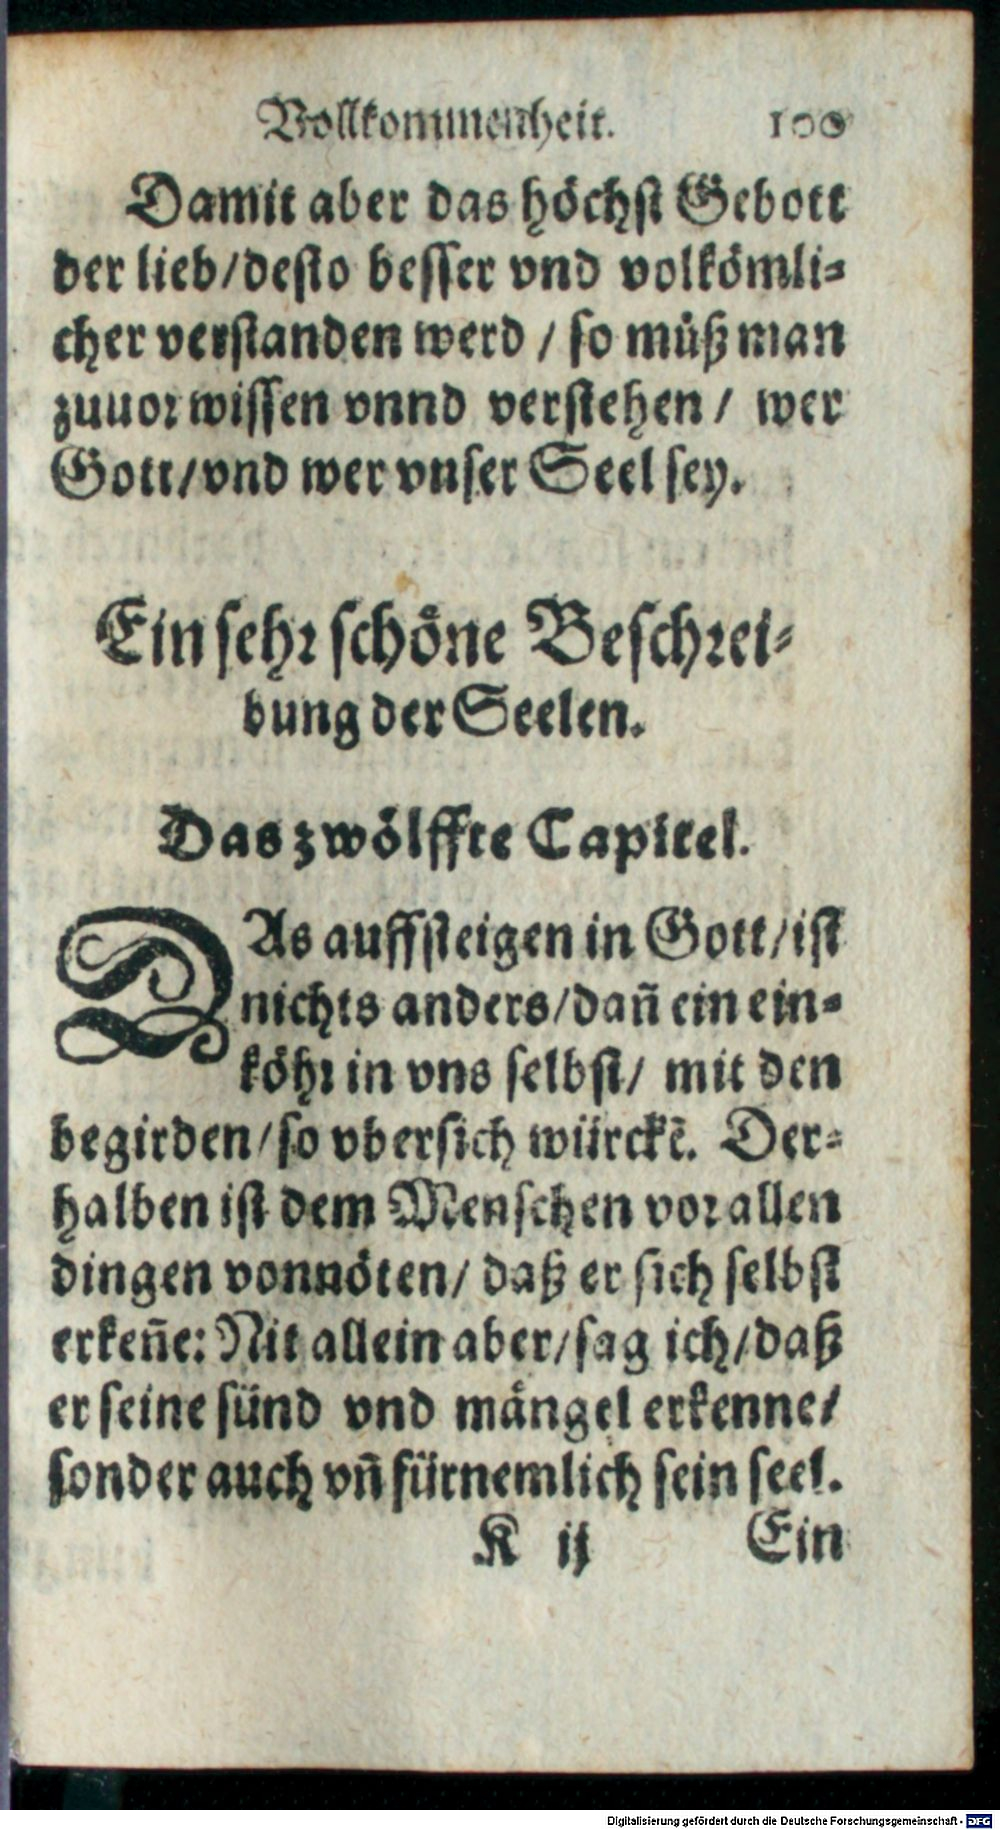 Vollkommenheit. 100
Damit aber das höchst Gebott
der lieb/desto besser vnd volkömli-
cher verstanden werd / so müß man
zuuor wissen vnnd verstehen / wer
Gott/vnd wer vnser Seel sey.
Ein sehr schöne Beschrei-
bung der Seelen.
Das zwölffte Capitel.
DAs auffsteigen in Gott/ist
nichts anders/dañ ein ein-
köhr in vns selbst/ mit den
begirden/so vbersich würckē. Der-
halben ist dem Menschen vor allen
dingen vonnöten/ daß er sich selbst
erkeñe: Nit allein aber/sag ich/daß
er seine sünd vnd mängel erkenne/
sonder auch vñ fürnemlich sein seel.
K ij Ein
Digitalisierung gefördert durch die Deutsche Forschungsgemeinschaft - DFG